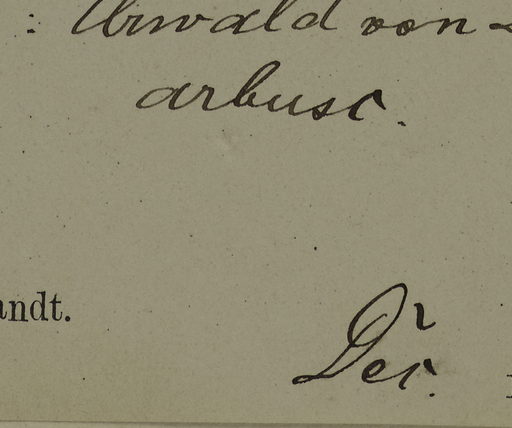 : Urwald von
arbusc.
andt.
Dec.